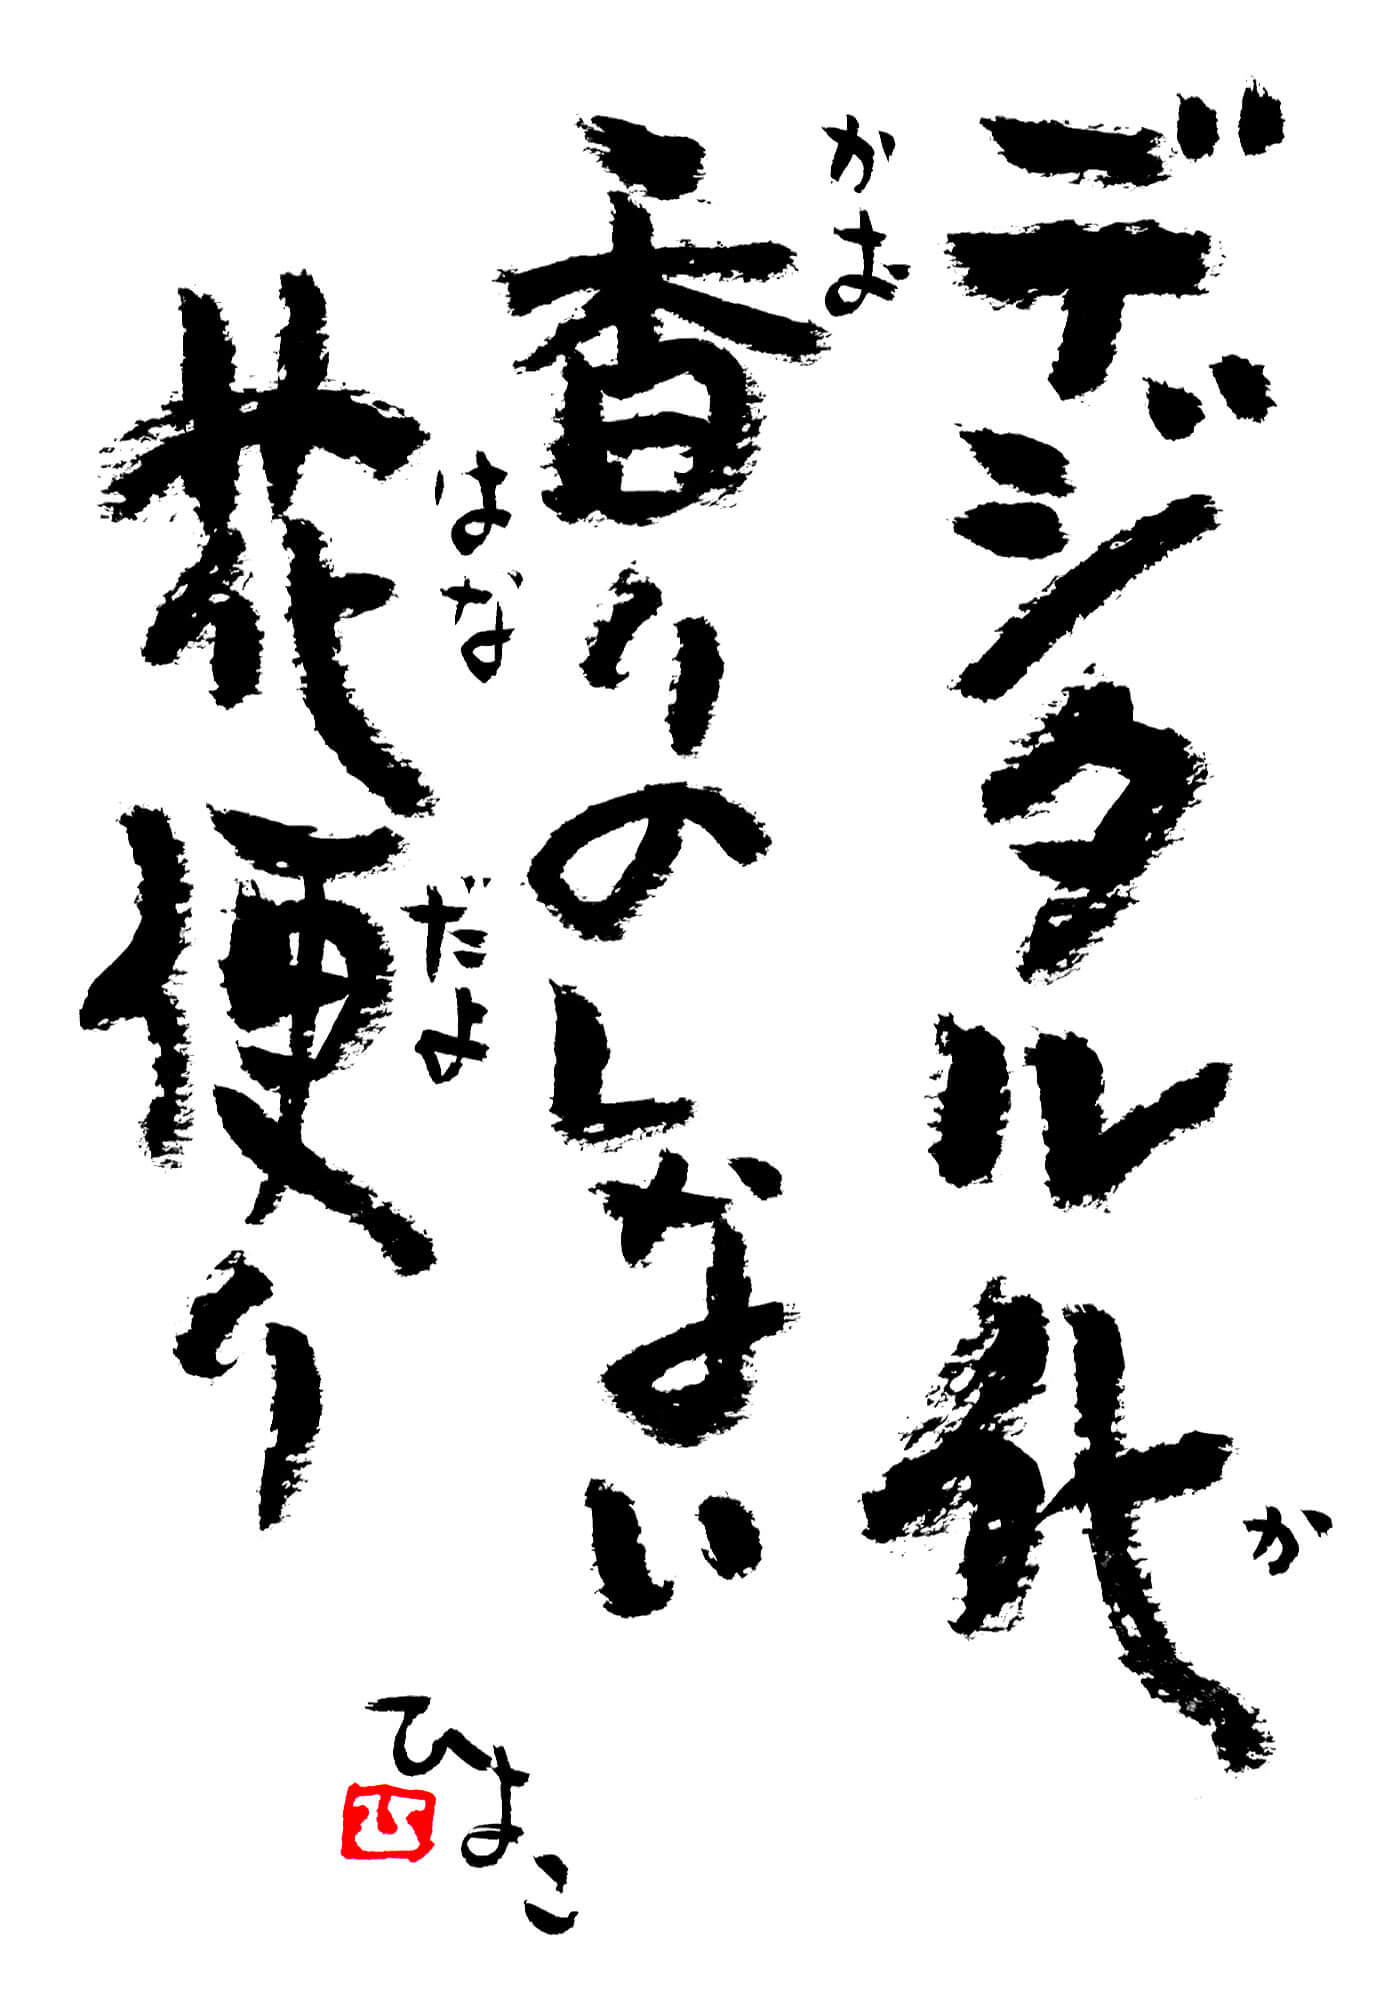 デジタル化
か
香りのしない
かお
花便り
はな だよ
ひよこ
ひ